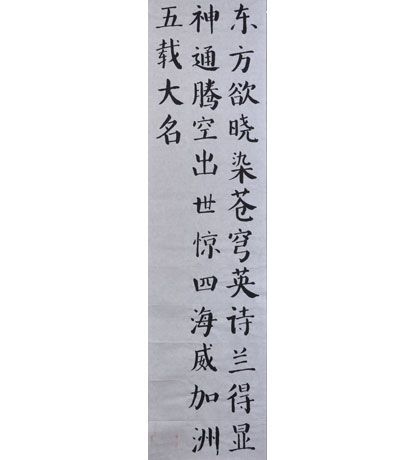 东方欲晓染苍穹英诗兰得显
神通腾空出世惊四海威加洲
五载大名